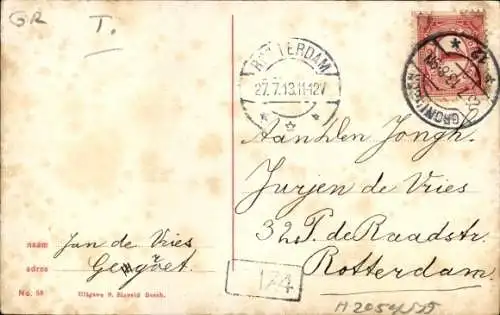 GR T.
ROTTERDAM
27.7.13.11-12V
GRONINGEN
Aan Den Jongh.
Jurjen de Vries
32 P. de Raadstr.
Rotterdam.
naam Jan de Vries
adres
No. 58 Uitgave
174